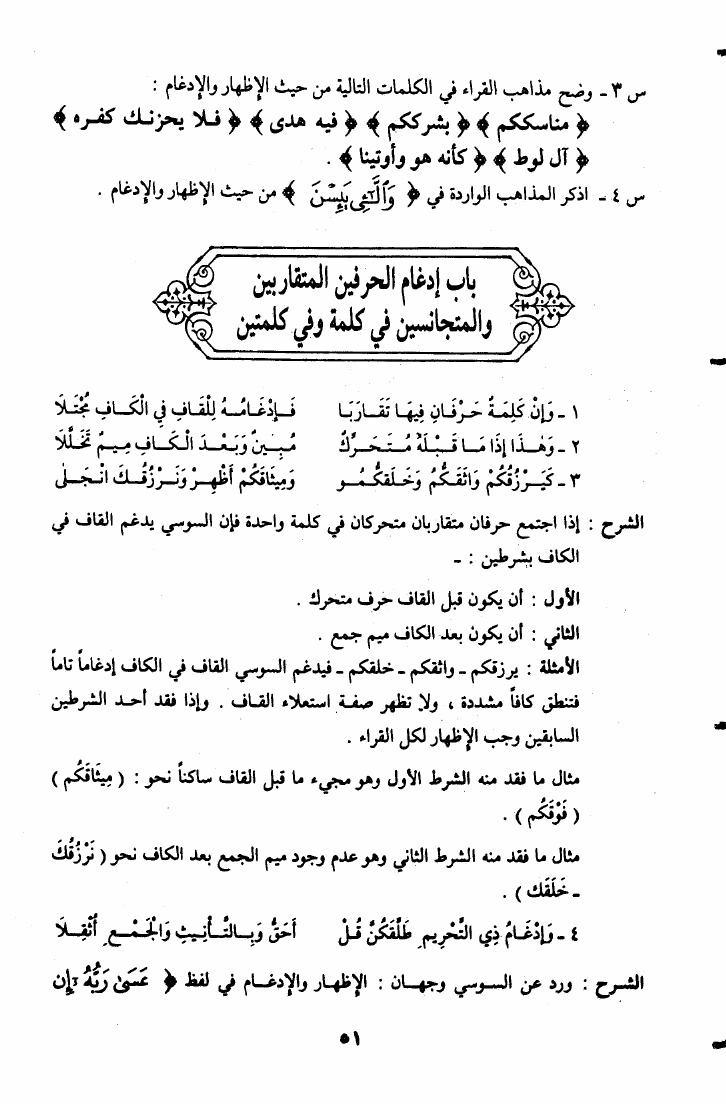 س ٣ - وضح مذاهب القراء في الكلمات التالية من حيث الإظهار والإدغام :
﴿ مناسككم ﴾ ﴿ بشرككم ﴾ ﴿ فيه هدى ﴾ ﴿ فلا يحزنك كفره ﴾
﴿ آل لوط ﴾ ﴿ كأنه هو وأوتينا ﴾ .
س ٤ - اذكر المذاهب الواردة في ﴿ وَالَّٰٓـِٔي يَئِسْنَ ﴾ من حيث الإظهار والإدغام .
باب إدغام الحرفين المتقاربين
والمتجانسين في كلمة وفي كلمتين
١ - وَإِنْ كَلِمَةٌ حَرْفَانِ فِيهَا تَقَارَبَا فَإِدْغَامُهُ لِلْقَافِ فِي الْكَافِ مُجْتَلَا
٢ - وَهَذَا إِذَا مَا قَبْلَهُ مُتَحَرِّكٌ مُبِينٌ وَبَعْدَ الْكَافِ مِيمٌ تَخَلَّلَا
٣ - كَيَرْزُقُكُمْ وَاثَقَكُمُ وَخَلَقَكُمُو وَمِيثَاقَكُمْ أَظْهِرْ وَنَرْزُقُكَ انْجَلَى
الشرح : إذا اجتمع حرفان متقاربان متحركان في كلمة واحدة فإن السوسي يدغم القاف في
الكاف بشرطين : -
الأول : أن يكون قبل القاف حرف متحرك .
الثاني : أن يكون بعد الكاف ميم جمع .
الأمثلة : يرزقكم - واثقكم - خلقكم - فيدغم السوسي القاف في الكاف إدغاماً تاماً
فتنطق كافاً مشددة ، ولا تظهر صفة استعلاء القاف . وإذا فقد أحد الشرطين
السابقين وجب الإظهار لكل القراء .
مثال ما فقد منه الشرط الأول وهو مجيء ما قبل القاف ساكناً نحو : ( مِيثَاقَكُم )
( فَوْقَكُم ) .
مثال ما فقد منه الشرط الثاني وهو عدم وجود ميم الجمع بعد الكاف نحو ( نَرْزُقُكَ
- خَلَقَكَ ) .
٤ - وَإِدْغَامُ ذِي التَّحْرِيمِ طَلَّقَكُنَّ قُلْ أَحَقُّ وَبِالتَّأْنِيثِ وَالْجَمْعِ أُثْقِلَا
الشرح : ورد عن السوسي وجهان : الإظهار والإدغام في لفظ ﴿ عَسَىٰ رَبُّهُۥٓ إِن
٥١